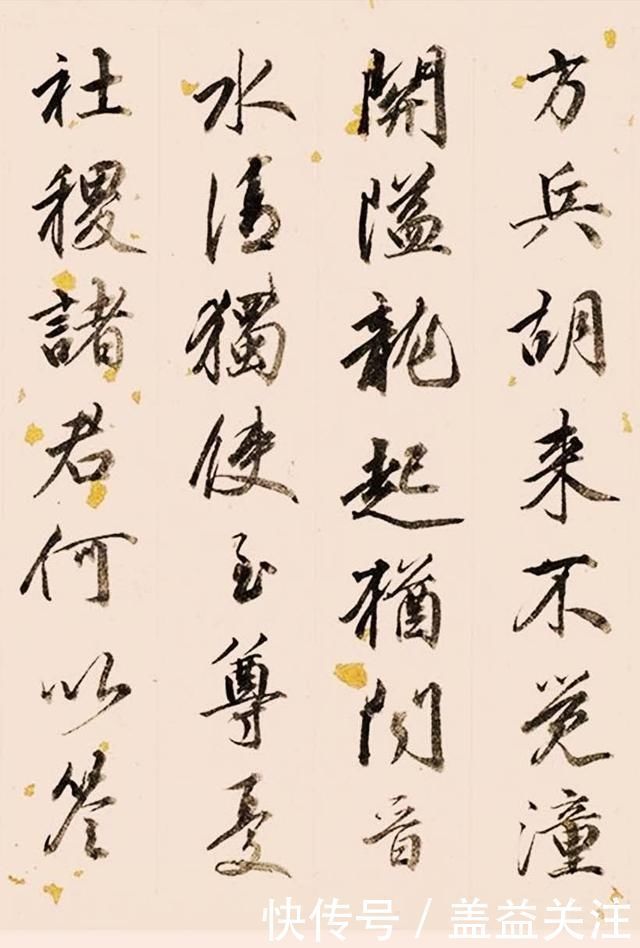 方兵胡来不覺潼
關隘龍起猶聞晋
水清獨使至尊憂
社稷諸君何以答
快传号/盖益关注